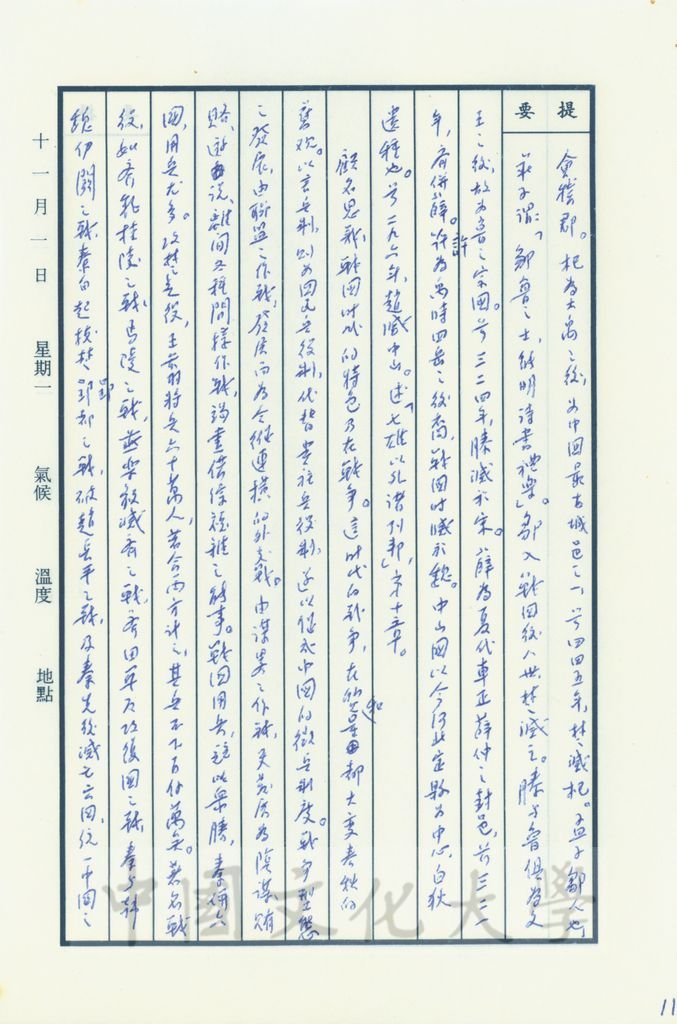 提要
會稽郡。杞為大禹之後，為中國最古城邑之一，前四四五年，楚滅杞。孟子鄒人也，
莊子謂：「鄒魯之士，能明詩書禮樂」。鄒入戰國後八世，楚滅之。滕與魯俱為文
王之後，故為魯之宗國。前三二四年，滕滅於宋。薛為夏代車正薛仲之封邑，前三二二
年，齊併薛。許
許為禹時四岳之後裔，戰國時滅於魏。中山國以今河北定縣為中心，白狄
遺種也。前二九六年，趙滅中山。述「七雄以外諸列邦」，第十五章。
顧名思義，戰國時代的特色乃在戰爭。這時代的戰爭，在質和量都大變春秋的
舊觀。以言兵制，則為國民兵役制，代替貴族兵役制，遂以促成中國的徵兵制度。戰爭型態
之發展，由聯盟之作戰，發展而為合縱連橫的外交戰。由謀略之作戰，更發展為陰謀賄
賂、遊說、離間各種間諜作戰，竭盡偵綜複雜之能事。戰國用兵，說以眾勝，秦併六
國，用兵尤多。攻楚之役，王翦將兵六十萬人，若合兩方計之，其兵不下百餘萬矣。著名戰
役，如齊魏桂陵之戰，馬陵之戰，燕樂毅滅齊之戰，齊田單反攻復國之戰，秦與韓
魏伊闕之戰，秦白起拔楚鄢郢
都之戰，破趙長平之戰，及秦先後滅亡六國，統一中國之
十一月一日 星期一 氣候 溫度 地點
中國文化大學
11